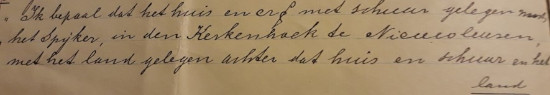 Ik bepaal dat het huis en erf met schuur gelegen naast
het Spijker, in den Kerkenhoek te Nieuwleusen,
met het land gelegen achter dat huis en schuur en het
land